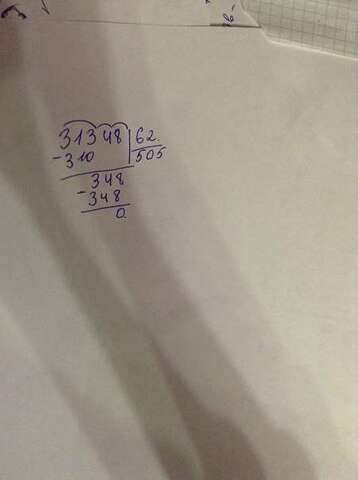 31348 62
-310 505
348
-348
0